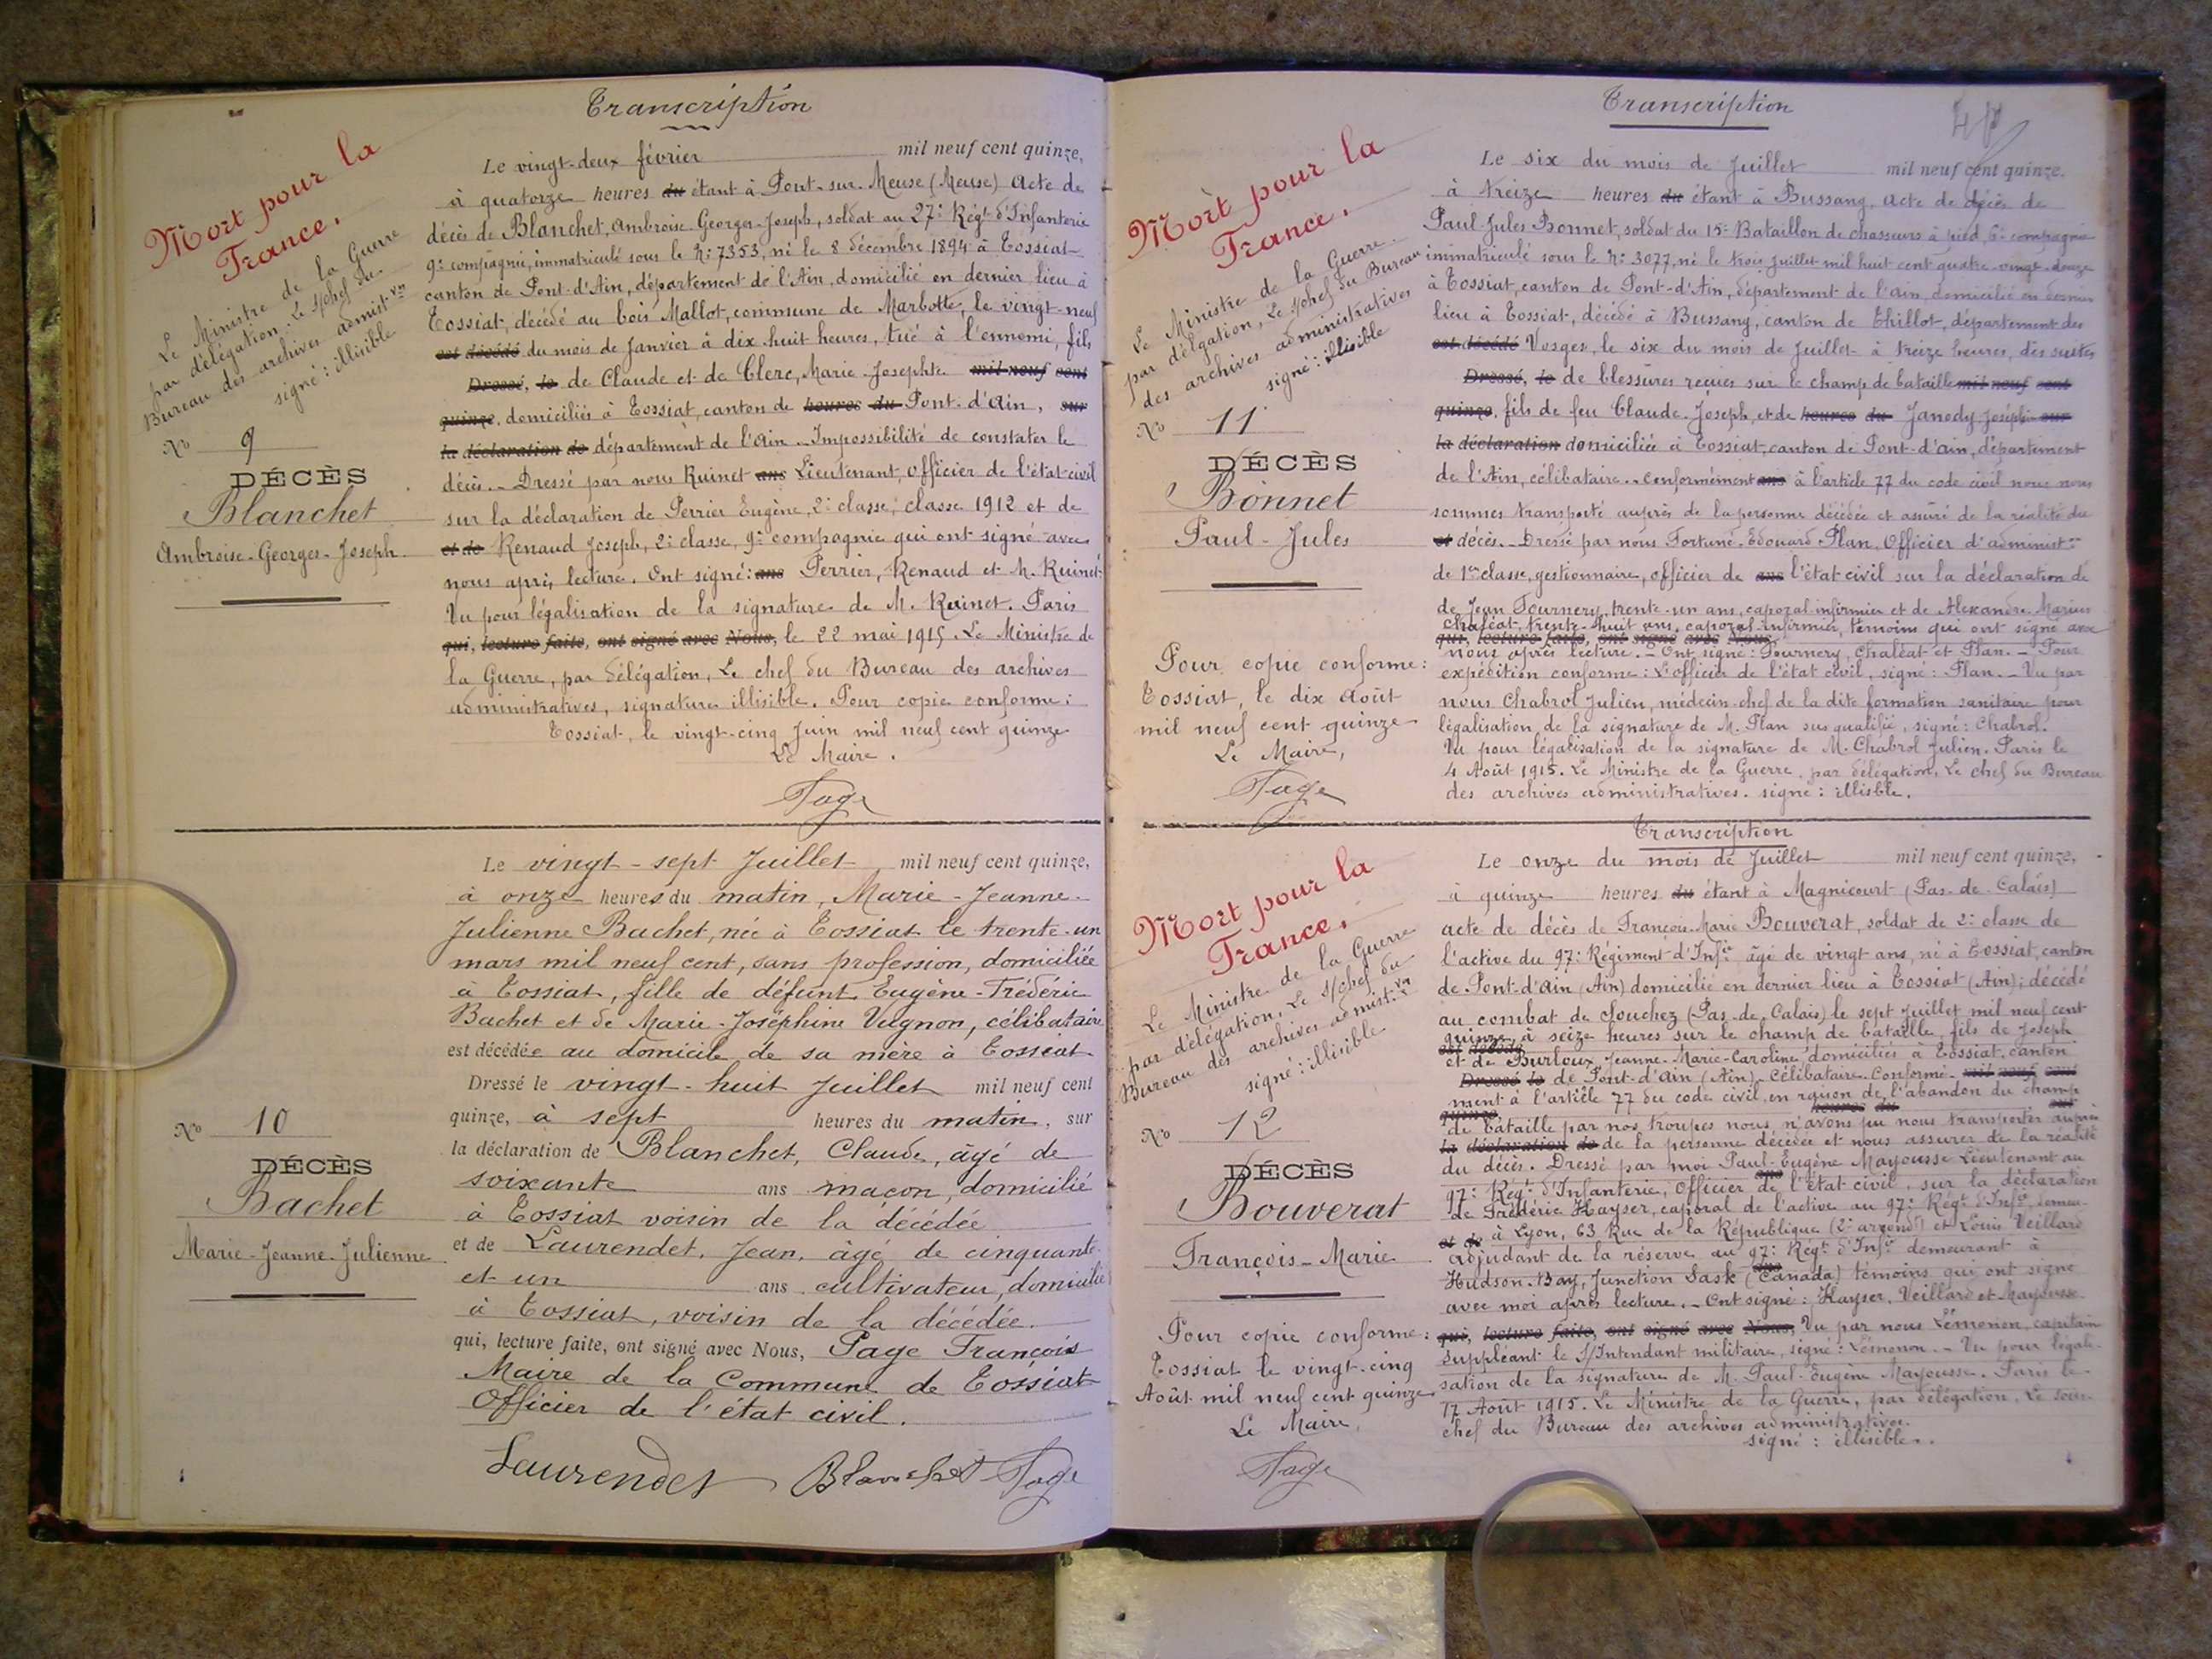 Transcription
Mort pour la
France.
Le Ministre de la Guerre
par délégation. Le s/chef du
Bureau des archives admist.ves
signé : illisible
No 9
DÉCÈS
Blanchet
Ambroise-Georges-Joseph
Le vingt-deux février mil neuf cent quinze,
à quatorze heures du étant à Pont-sur-Meuse (Meuse) Acte de
décès de Blanchet, Ambroise Georges-Joseph, soldat au 27e Régt d'Infanterie
9e compagnie, immatriculé sous le No 7353, né le 8 décembre 1894 à Tossiat
canton de Pont-d'Ain, département de l'Ain, domicilié en dernier lieu à
Tossiat, décédé au bois Mallot, commune de Marbotte, le vingt-neuf
est décédé du mois de Janvier à dix huit heures, tué à l'ennemi, fils
Dressé, le de Claude et de Clerc, Marie-Josephte mil neuf cent
quinze, domiciliés à Tossiat, canton de heures du Pont-d'Ain, sur
la déclaration de département de l'Ain _ Impossibilité de constater le
décès. _ Dressé par nous Ruinet ans Lieutenant, Officier de l'état-civil
sur la déclaration de Perrier Eugène, 2e classe, classe 1912 et de
et de Renaud Joseph, 2e classe, 9e compagnie qui ont signé avec
nous après lecture. Ont signé : ans Perrier, Renaud et M. Ruinet.
Vu pour légalisation de la signature de M. Ruinet. Paris
qui, lecture faite, ont signé avec Nous, le 22 mai 1915. Le Ministre de
la Guerre, par délégation, Le chef du Bureau des archives
administratives, signature illisible. Pour copie conforme :
Tossiat, le vingt-cinq Juin mil neuf cent quinze
Le Maire.
Page
No 10
DÉCÈS
Bachet
Marie-Jeanne-Julienne
Le vingt-sept Juillet mil neuf cent quinze,
à onze heures du matin, Marie-Jeanne-
Julienne Bachet, née à Tossiat le trente-un
mars mil neuf cent, sans profession, domiciliée
à Tossiat, fille de défunt Eugène-Frédéric
Bachet et de Marie-Joséphine Vugnon, célibataire
est décédée au domicile de sa mère à Tossiat
Dressé le vingt-huit Juillet mil neuf cent
quinze, à sept heures du matin, sur
la déclaration de Blanchet, Claude, âgé de
soixante ans maçon, domicilié
à Tossiat voisin de la décédée
et de Laurendet, Jean, âgé de cinquante
et un ans cultivateur, domicilié
à Tossiat, voisin de la décédée.
qui, lecture faite, ont signé avec Nous, Page François
Maire de la Commune de Tossiat
Officier de l'état civil.
Laurendet Blanchet Page
Transcription
Mort pour la
France.
Le Ministre de la Guerre
par délégation, Le s/chef du Bureau
des archives administratives
signé : illisible
No 11
DÉCÈS
Bonnet
Paul-Jules
Pour copie conforme :
Tossiat, le dix Août
mil neuf cent quinze
Le Maire,
Page
Le six du mois de Juillet mil neuf cent quinze.
à treize heures du étant à Bussang, acte de décès de
Paul-Jules Bonnet, soldat du 15e Bataillon de chasseurs à pied, 6e compagnie
immatriculé sous le No 3077, né le trois Juillet mil huit cent quatre-vingt-douze
à Tossiat, canton de Pont-d'Ain, département de l'ain, domicilié en dernier
lieu à Tossiat, décédé à Bussang, canton de Thillot, département des
est décédé Vosges, le six du mois de Juillet à treize heures, des suites
Dressé, le de blessures reçues sur le champ de bataille mil neuf cent
quinze, fils de feu Claude-Joseph, et de heures du Janody Joséphte sur
la déclaration domiciliée à Tossiat, canton de Pont-d'ain, département
de l'Ain, célibataire. _ Conformément ans à l'article 77 du code civil nous nous
sommes transporté auprès de la personne décédée et assuré de la réalité du
et décès. _ Dressé par nous Fortuné-Edouard Plan, Officier d'administ.on
de 1ere classe, gestionnaire, officier de ans l'état civil sur la déclaration de
de Jean Fournery, trente-un ans, caporal infirmier et de Alexandre-Marius
Chaléat, trente-huit ans, caporal infirmier, témoins qui ont signé avec
qui, lecture faite, ont signé avec Nous,
nous après lecture. _ Ont signé : Fournery, Chaléat et Plan. _ Pour
expédition conforme : L'officier de l'état civil, signé : Plan. _ Vu par
nous Chabrol Julien, médecin-chef de la dite formation sanitaire pour
légalisation de la signature de M. Plan sus qualifié, signé : Chabrol.
Vu pour légalisation de la signature de M. Chabrol Julien. Paris le
4 Août 1915. Le Ministre de la Guerre, par délégation, Le chef du Bureau
des archives administratives. signé : illisible.
Transcription
Mort pour la
France.
Le Ministre de la Guerre
par délégation, Le s/chef du
Bureau des archives admist.ves
signé : illisible
No 12
DÉCÈS
Bouverat
François-Marie
Pour copie conforme :
Tossiat le vingt-cinq
Août mil neuf cent quinze
Le Maire,
Page
Le onze du mois de Juillet mil neuf cent quinze,
à quinze heures du étant à Magnicourt (Pas-de-Calais)
acte de décès de François-Marie Bouverat, soldat de 2e classe de
l'active du 97e Régiment d'Infie âgé de vingt ans, né à Tossiat, canton
de Pont-d'Ain (Ain) domicilié en dernier lieu à Tossiat (Ain) ; décédé
au combat de Souchez (Pas-de-Calais) le sept Juillet mil neuf cent
quinze, à seize heures sur le champ de bataille, fils de Joseph
est décédé
et de Burloux Jeanne-Marie-Caroline domiciliés à Tossiat, canton
Dressé le de Pont-d'ain (Ain). Célibataire. Conformé- mil neuf cent
ment à l'article 77 du code civil, en raison de l'abandon du champ
quinze, heures du sur
de bataille par nos troupes nous n'avons pu nous transporter auprès
la déclaration de de la personne décédée et nous assurer de la réalité
du décès. Dressé par moi Paul-Eugène Mayousse Lieutenant au
97e Régt d'Infanterie, Officier de l'état civil, sur la déclaration
de Frédéric Kayser, caporal de l'active au 97e Régt d'Infie, demeu-
et de à Lyon, 63 Rue de la République (2e arrondt) et Louis Veillard
adjudant de la réserve au 97e Régt d'Infie demeurant à
Hudson-Bay, Junction Sask (Canada) témoins qui ont signé
avec moi après lecture. _ Ont signé : Kayser, Veillard et Mayousse.
qui, lecture faite, ont signé avec Nous, Vu par nous Lémonon, capitain
suppléant le S/Intendant militaire, signé : Lémonon. _ Vu pour légali-
sation de la signature de M. Paul-Eugène Mayousse. Paris le
17 Août 1915. Le Ministre de la Guerre, par délégation, Le sous-
chef du Bureau des archives administratives.
signé : illisible.